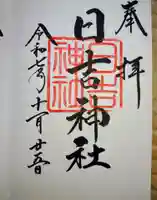 奉拝
日吉神社
日吉
神社
令和七年十一月廿五日